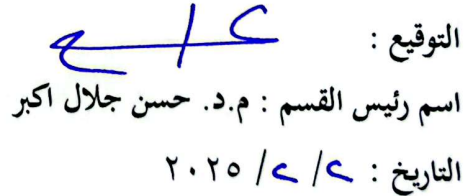 التوقيع :
اسم رئيس القسم : م.د. حسن جلال اكبر
التاريخ : ٢ / ٢ / ٢٠٢٥